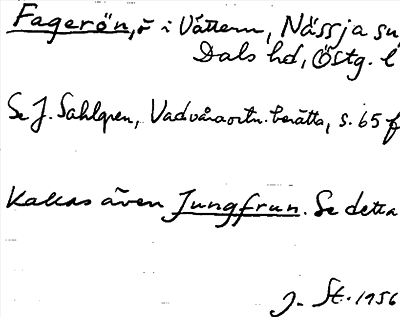 Fagerön, ö i Vättern, Nässja sn
Dals hd, Östg. l
Se J. Sahlgren, Vad våra ortn. berätta, s. 65 f
Kallas även Jungfrun. Se detta
J. St. 1956